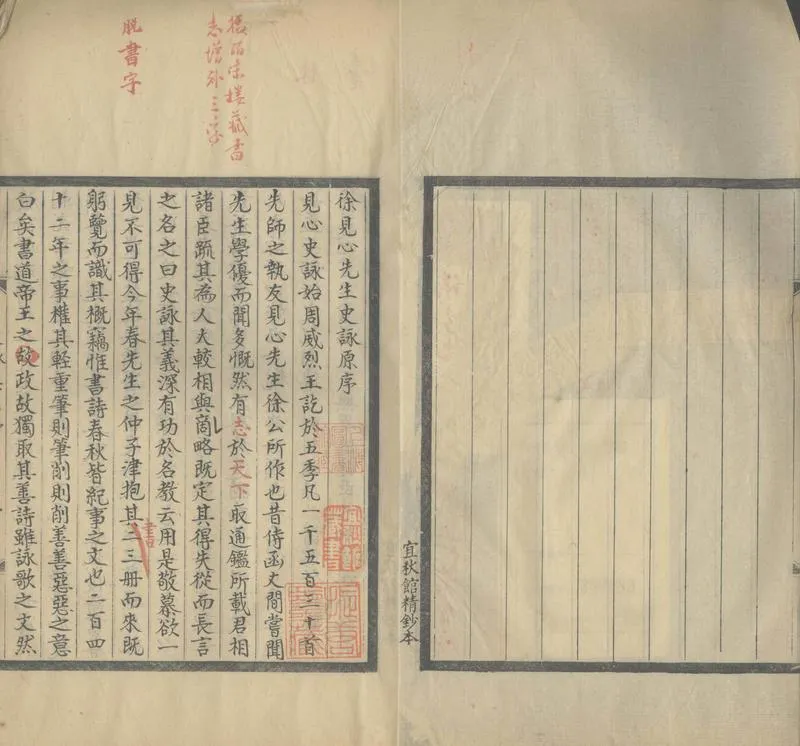 宜秋館精鈔本
據皕宋樓藏書
志增外三字
脫書字
徐見心先生史詠原序
見心史詠始周威烈王訖於五季凡一千五百三十首
先師之執友見心先生徐公所作也昔侍函文間嘗聞
先生學優而聞多慨然有志於天下取通鑑所載君相
諸臣跡其為人大較相與商略既定其得失從而長言
之名之曰史詠其義深有功於名教云用是敬慕欲一
見不可得今年春先生之仲子津抱其書二三冊而來既
躬覽而識其概竊惟書詩春秋皆紀事之文也二百四
十二年之事權其輕重筆則筆削則削善善惡惡之意
白矣書道帝王之政故獨取其善詩雖詠歌之文然